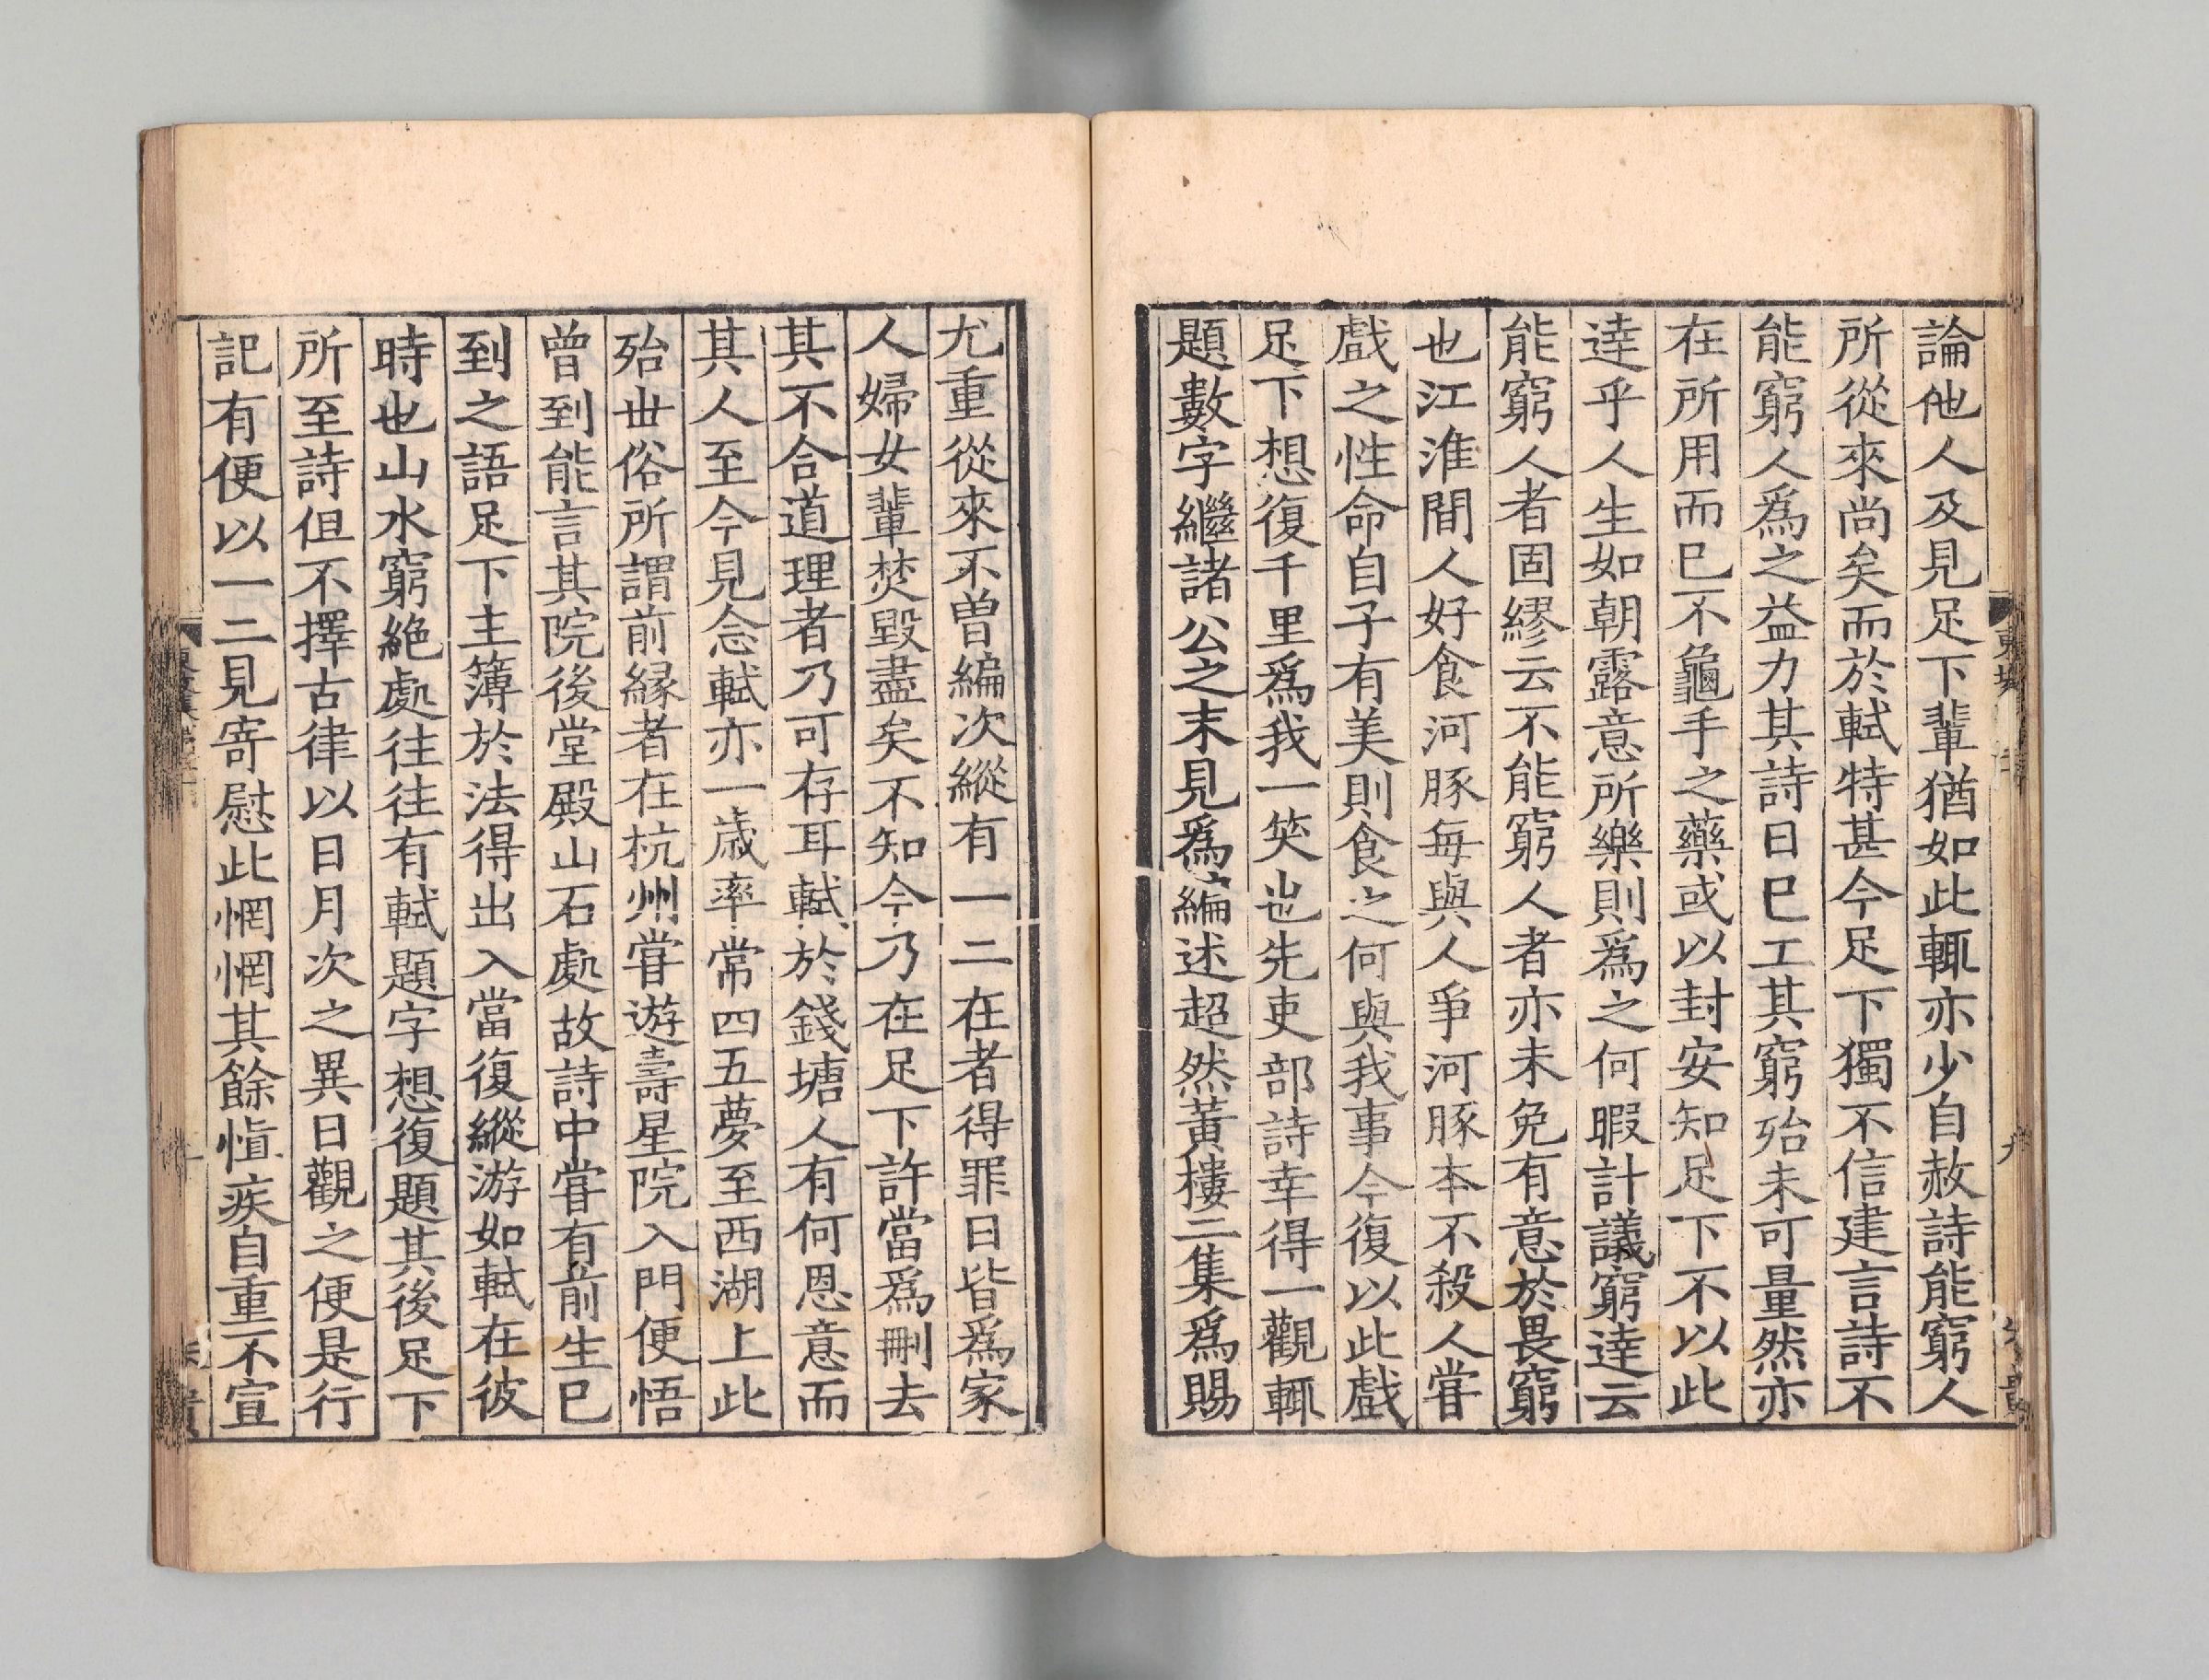 論他人及見足下輩猶如此輒亦少自赦詩能窮人
所從來尚矣而於軾特甚今足下獨不信建言詩不
能窮人爲之益力其詩日已工其窮殆未可量然亦
在所用而已不龜手之藥或以封安知足下不以此
達乎人生如朝露意所樂則爲之何暇計議窮達云
能窮人者固繆云不能窮人者亦未免有意於畏窮
也江淮間人好食河豚每與人爭河豚本不殺人甞
戲之性命自子有美則食之何與我事今復以此戲
足下想復千里爲我一笑也先吏部詩幸得一觀輒
題數字繼諸公之末見爲編述超然黃樓二集爲賜
尤重從來不曽編次縱有一二在者得罪日皆爲家
人婦女輩焚毀盡矣不知今乃在足下許當爲刪去
其不合道理者乃可存耳軾於錢塘人有何恩意而
其人至今見念軾亦一歲率常四五夢至西湖上此
殆丗俗所謂前縁者在杭州甞遊壽星院入門便悟
曾到能言其院後堂殿山石處故詩中甞有前生已
到之語足下主簿於法得出入當復縱游如軾在彼
時也山水窮絶處往往有軾題字想復題其後足下
所至詩但不擇古律以日月次之異日觀之便是行
記有便以一二見寄慰此惘惘其餘愼疾自重不宣